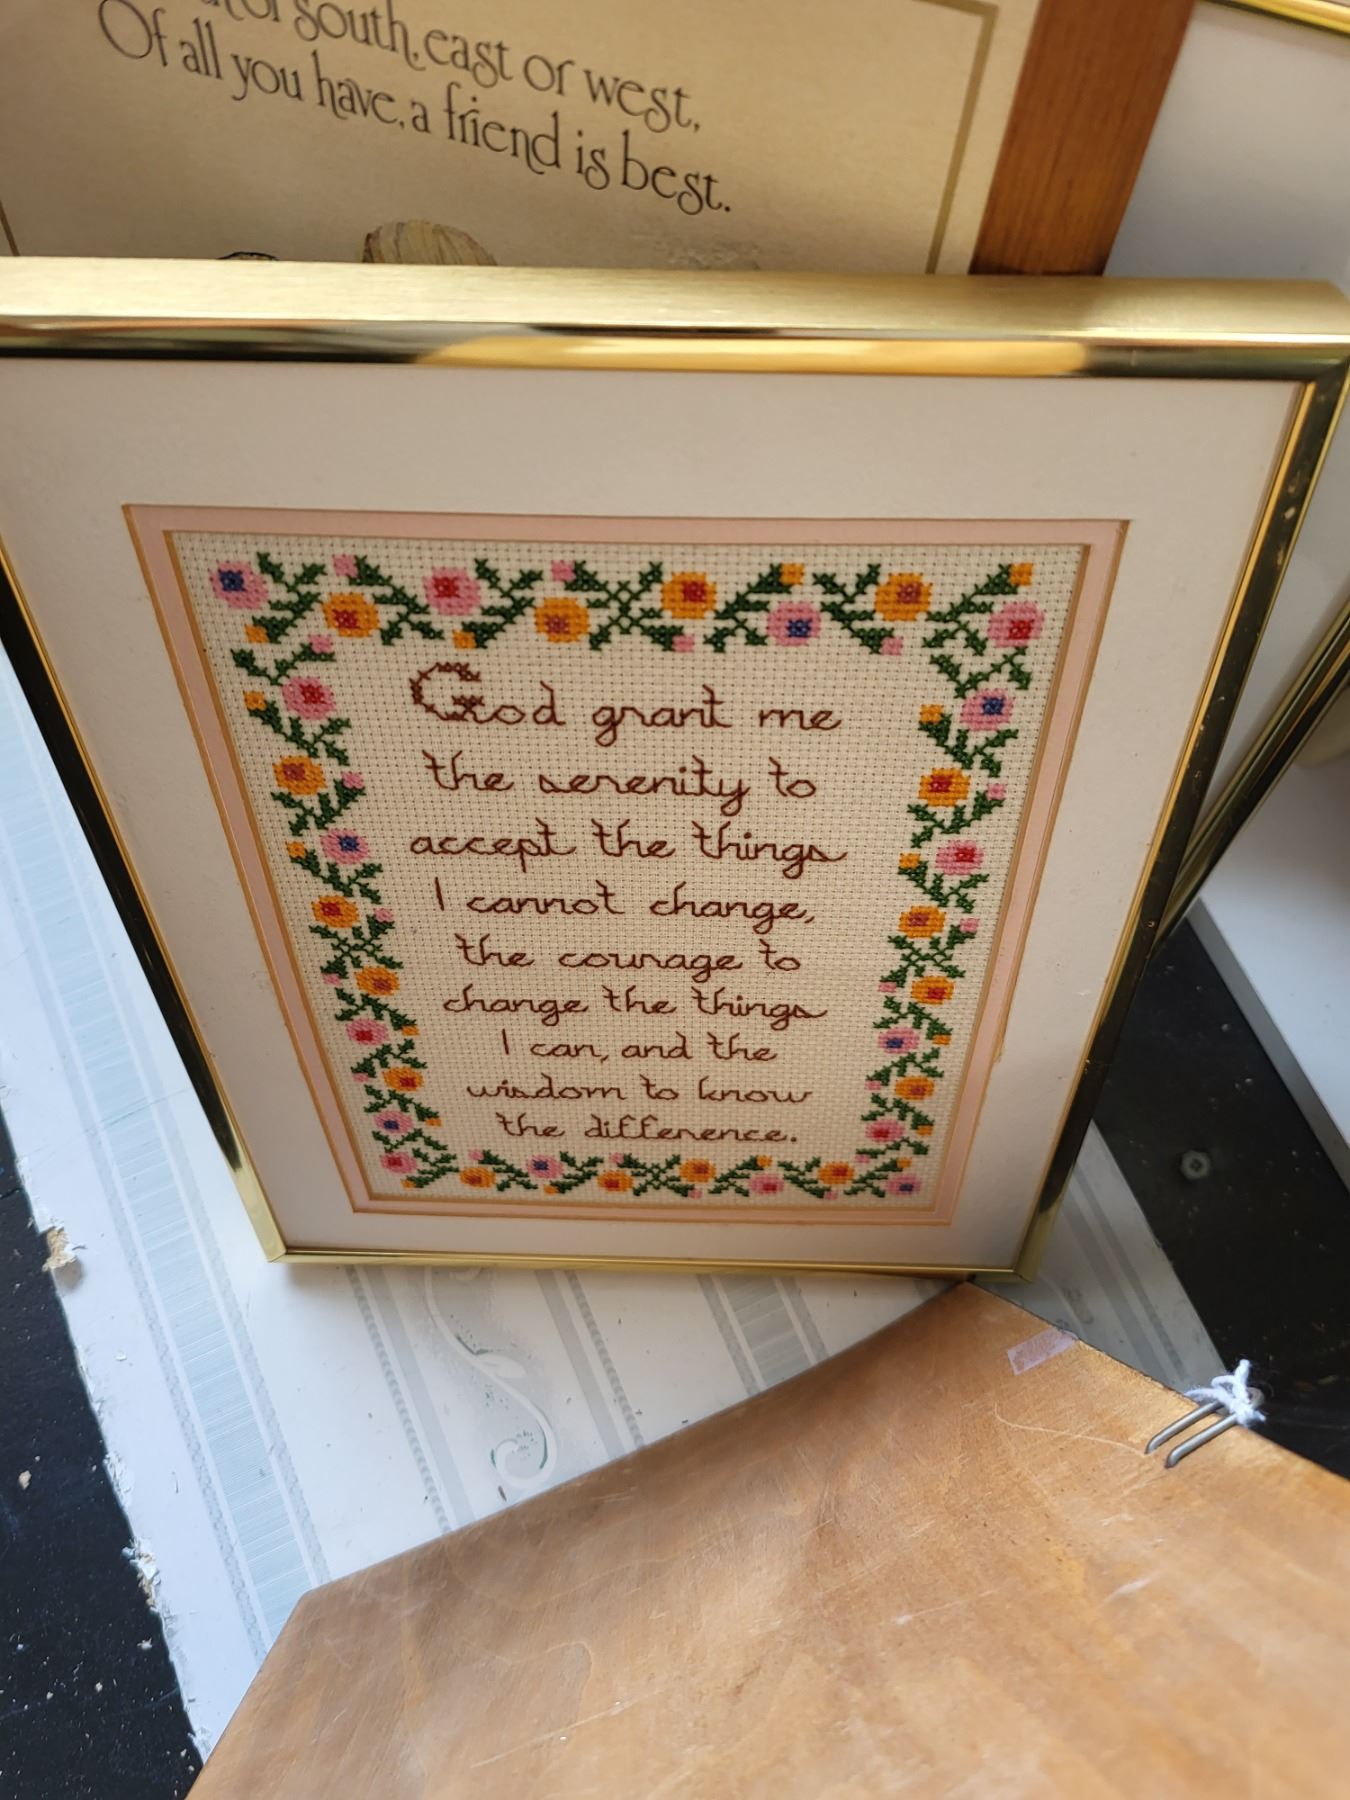 south, east or west,
Of all you have, a friend is best.
God grant me
the serenity to
accept the things
I cannot change,
the courage to
change the things
I can, and the
wisdom to know
the difference.